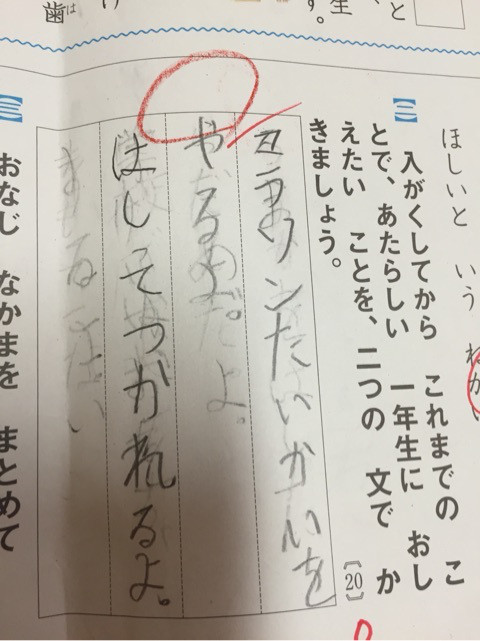 と
生
す。
歯
は
ほしいと いう ねがい
【二】
入がくしてから これまでの こ
とで、あたらしい 一年生に おし
えたい ことを、二つの 文で か
きましょう。
〔20〕
マラソンたいかいを
やるのだよ。
はしてつかれるよ。
【三】
おなじ なかまを まとめて